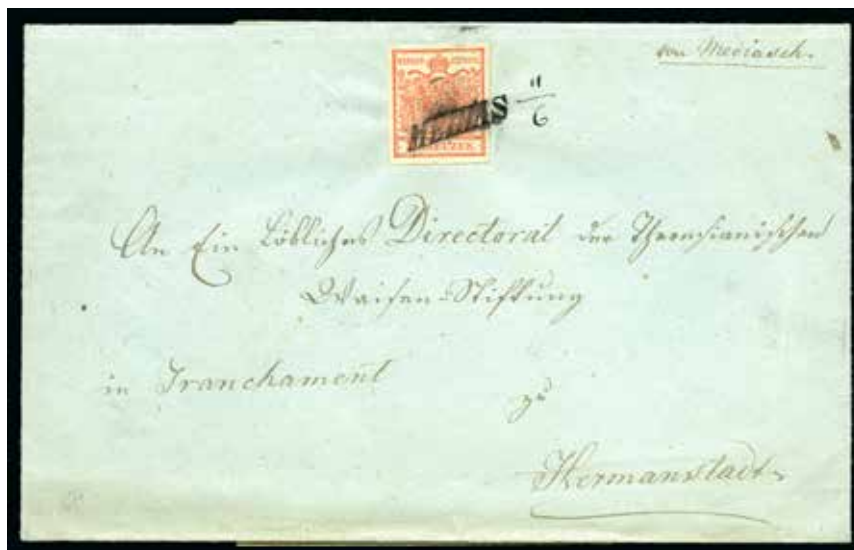 von Mediasch.
MEDIAS 11/6
KREUZER
An Ein Löbliches Directorat der Theresianischen
Waisen-Stiftung
in Tranchament
zu
Hermanstadt